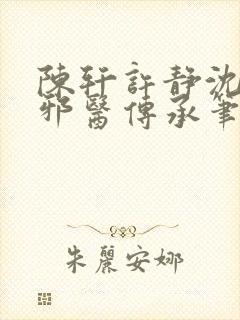 陳轩許静沈
邪醫傳承筆
朱麗安娜